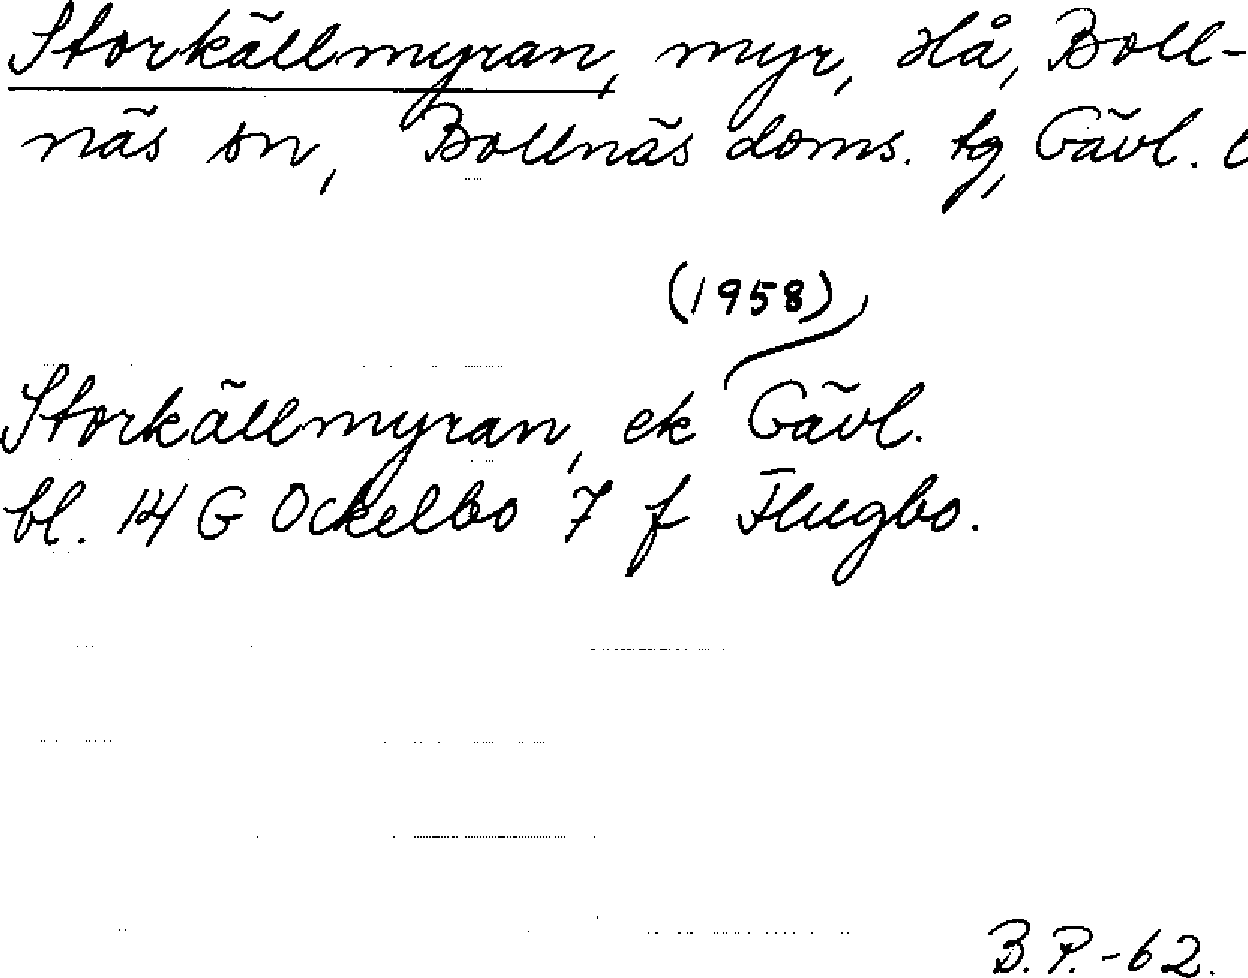 Storkällmyran, myr, Hå, Boll-
näs sn, Bollnäs doms. tg, Gävl. l
(1958)
Storkällmyran, ek Gävl.
bl. 14 G Ockelbo 7 f Flugbo.
B.P.-62.